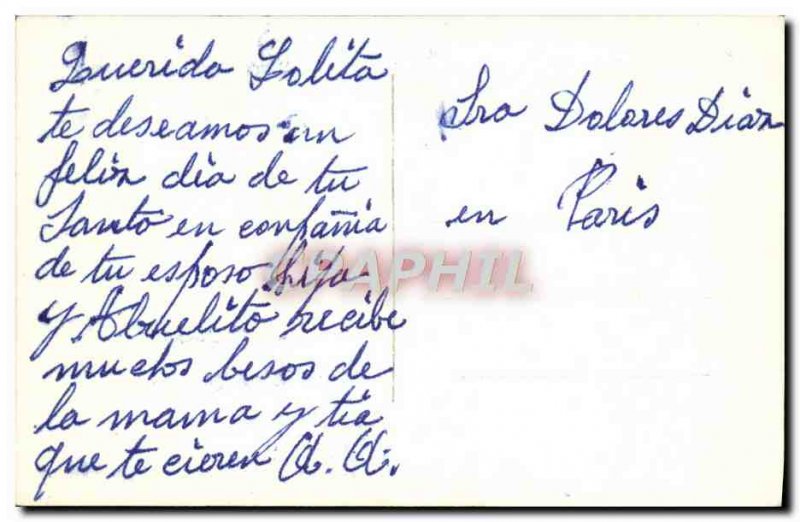 Querida Lolita
te deseamos un
felix dia de tu
Santo en conpañia
de tu esposo hija
y Abuelito recibe
muchos besos de
la mama y tia
que te cieren A. A.
Sra Dolores Diax
en Paris
CPAPHIL